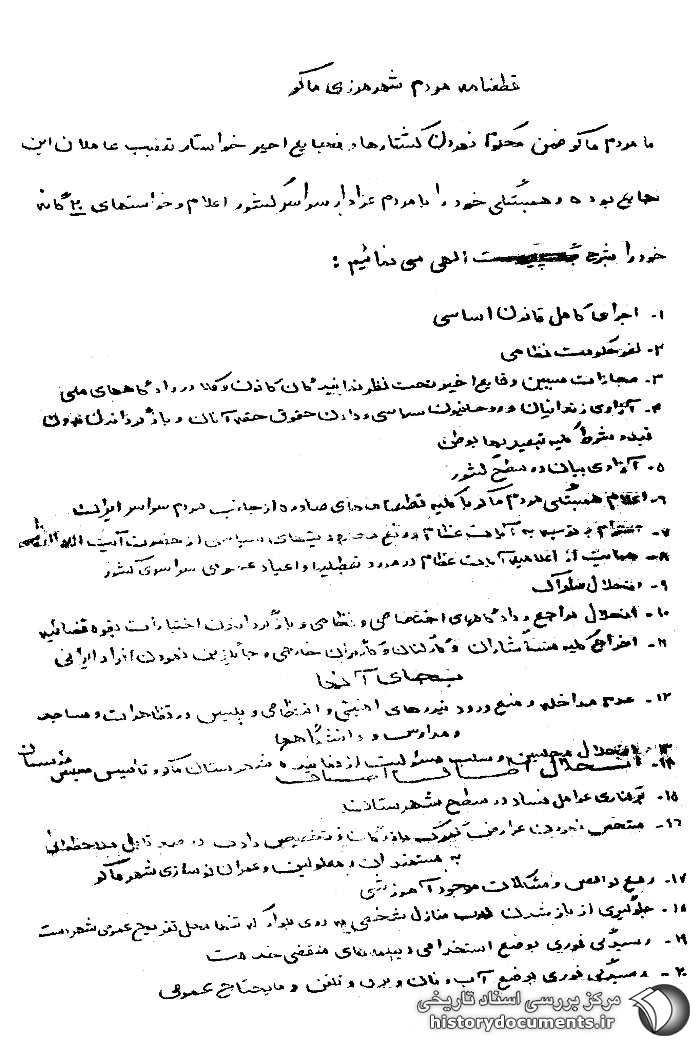 قطعنامه مردم شهر مرزی ماکو
ما مردم ماکو ضمن محکوم نمودن کشتارها و فجایع اخیر خواستار تعقیب عاملان این
فجایع بوده و همبستگی خود را با مردم عزادار سراسر کشور اعلام و خواستهای ۲۰ گانه
خود را بشرح الهی می نمائیم :
۱- اجرای کامل قانون اساسی
۲- لغو حکومت نظامی
۳- مجازات مسببین وقایع اخیر تحت نظر نمایندگان کانون وکلا در دادگاههای ملی
۴- آزادی زندانیان و روحانیون سیاسی و دادن حقوق حقه آنان و بازگرداندن بدون
قید و شرط کلیه تبعیدیها بوطن
۵- آزادی بیان در سطح کشور
۶- اعلام همبستگی مردم ماکو با کلیه قطعنامه های صادره از جانب مردم سراسر ایران
۷- احترام به آیات عظام و رفع سیاسی از حضرت آیت الله
۸- حمایت از اعلامیه آیات عظام در مورد تعطیلات و اعیاد عمومی سراسری کشور
۹- انحلال ساواک
۱۰- انحلال مراجع و دادگاههای اختصاصی و نظامی و بازگرداندن اختیارات بقوه قضائیه
۱۱- اخراج کلیه مستشاران و کارکنان و کارگران خارجی و جایگزین نمودن افراد ایرانی
بجای آنها
۱۲- عدم مداخله و منع ورود نیروهای امنیتی و انتظامی و پلیس در تظاهرات و مساجد
و مدارس و دانشگاهها
۱۳- انحلال مجلسین و سلب مسئولیت از نماینده شهرستان ماکو و تأسیس مجلس مؤسسان
۱۴- انحلال
۱۵- برکناری عوامل فساد در سطح شهرستان
۱۶- مشخص نمودن عوارض گمرک بازرگان و تخصیص دادن در صد قابل ملاحظه‌ای
به مستمندان و معلولین و عمران نوسازی شهر ماکو
۱۷- رفع نواقص و مشکلات موجود آموزشی
۱۸- جلوگیری از باز شدن درب منازل شخصی به روی بلوار که تنها محل تفریح عمومی شهر است
۱۹- رسیدگی فوری بوضع استخدامی دیپلمه های منقضی خدمت
۲۰- رسیدگی فوری بوضع آب و نان و برق و تلفن و مایحتاج عمومی
مرکز بررسی اسناد تاریخی
historydocuments.ir